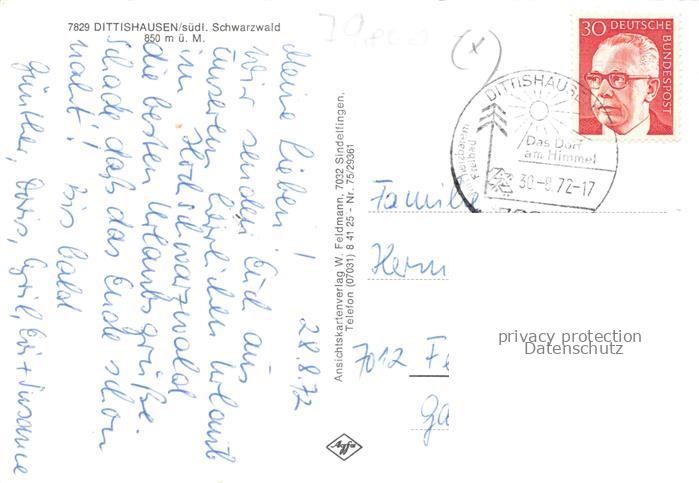 7829 DITTISHAUSEN/südl. Schwarzwald
850 m ü. M.
28.8.72
Meine Lieben!
Wir senden Euch aus
unserem herrlichen Urlaub
im Hochschwarzwald
die besten Urlaubsgrüße
Schade daß das Ende schon
naht! Bis bald
Günther, Doris, Cyril, Evi + Susanne
Ansichtskartenverlag W. Feldmann, 7032 Sindelfingen,
Telefon (07031) 8 41 25 - Nr. 75/29361
Agfa
(x)
30 DEUTSCHE
BUNDESPOST
DITTISHAUSEN
Das Dorf
am Himmel
30-8.72-17
Familie
Herm
7012 Fe
Ga
privacy protection
Datenschutz